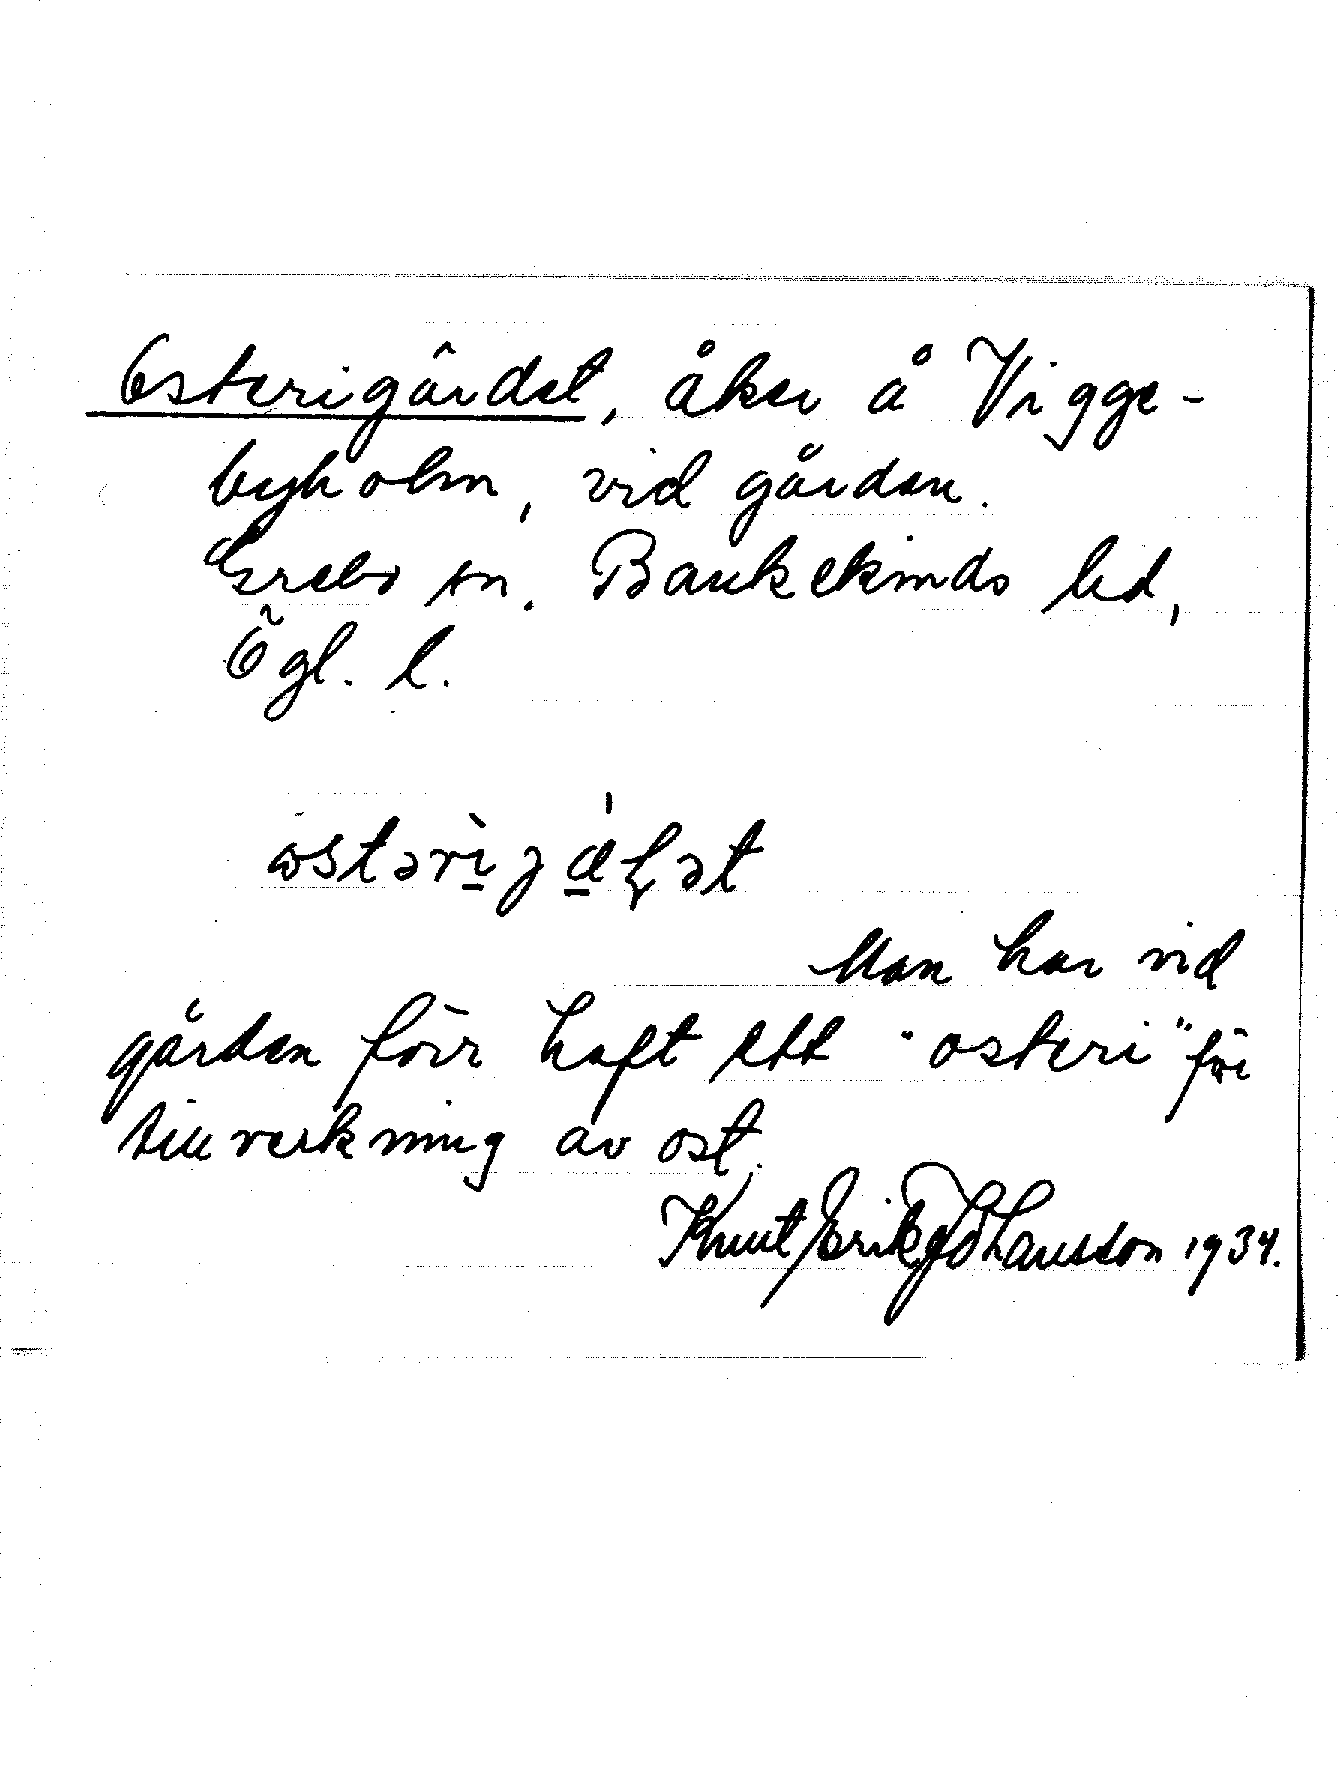 Osterigärdet, åker å Vigge-
byholm, vid gården.
Grebo sn. Bankekinds hd,
Ögl. l.
ostəri̱jæ̱ɽət
Man har vid
gården förr haft ett "osteri" för
tillverkning av ost.
Knut Erik Johansson 1934.